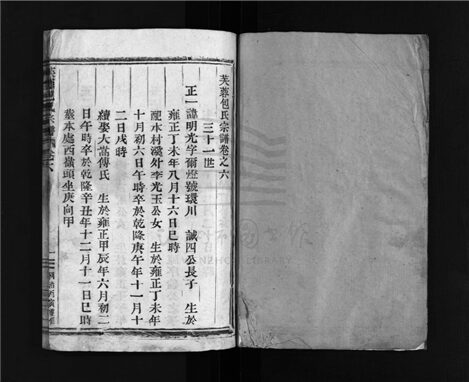 芙蓉包氏宗譜卷之六
三十一世
正一諱明光字爾燈號環川 誠四公長子 生於
雍正丁未年八月十六日巳時
配水村漢外李光玉公女 生於雍正丁未年
十月初六日午時卒於乾隆庚午年十一月十
二日戌時
續娶大嵩傅氏 生於雍正甲辰年六月初二
日午時卒於乾隆辛丑年十二月十一日巳時
葬本處西嶺頭坐庚向甲